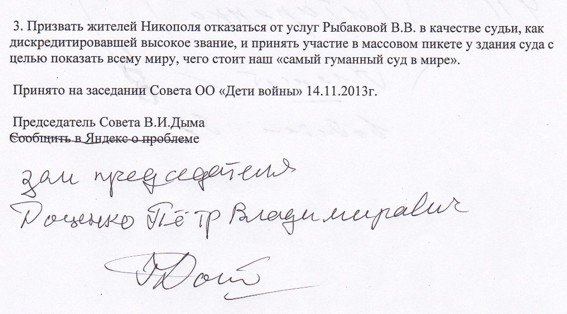 3. Призвать жителей Никополя отказаться от услуг Рыбаковой В.В. в качестве судьи, как
дискредитировавшей высокое звание, и принять участие в массовом пикете у здания суда с
целью показать всему миру, чего стоит наш «самый гуманный суд в мире».
Принято на заседании Совета ОО «Дети войны» 14.11.2013г.
Председатель Совета В.И.Дыма
Сообщить в Яндекс о проблеме
зам председателя
Доценко Пётр Владимирович